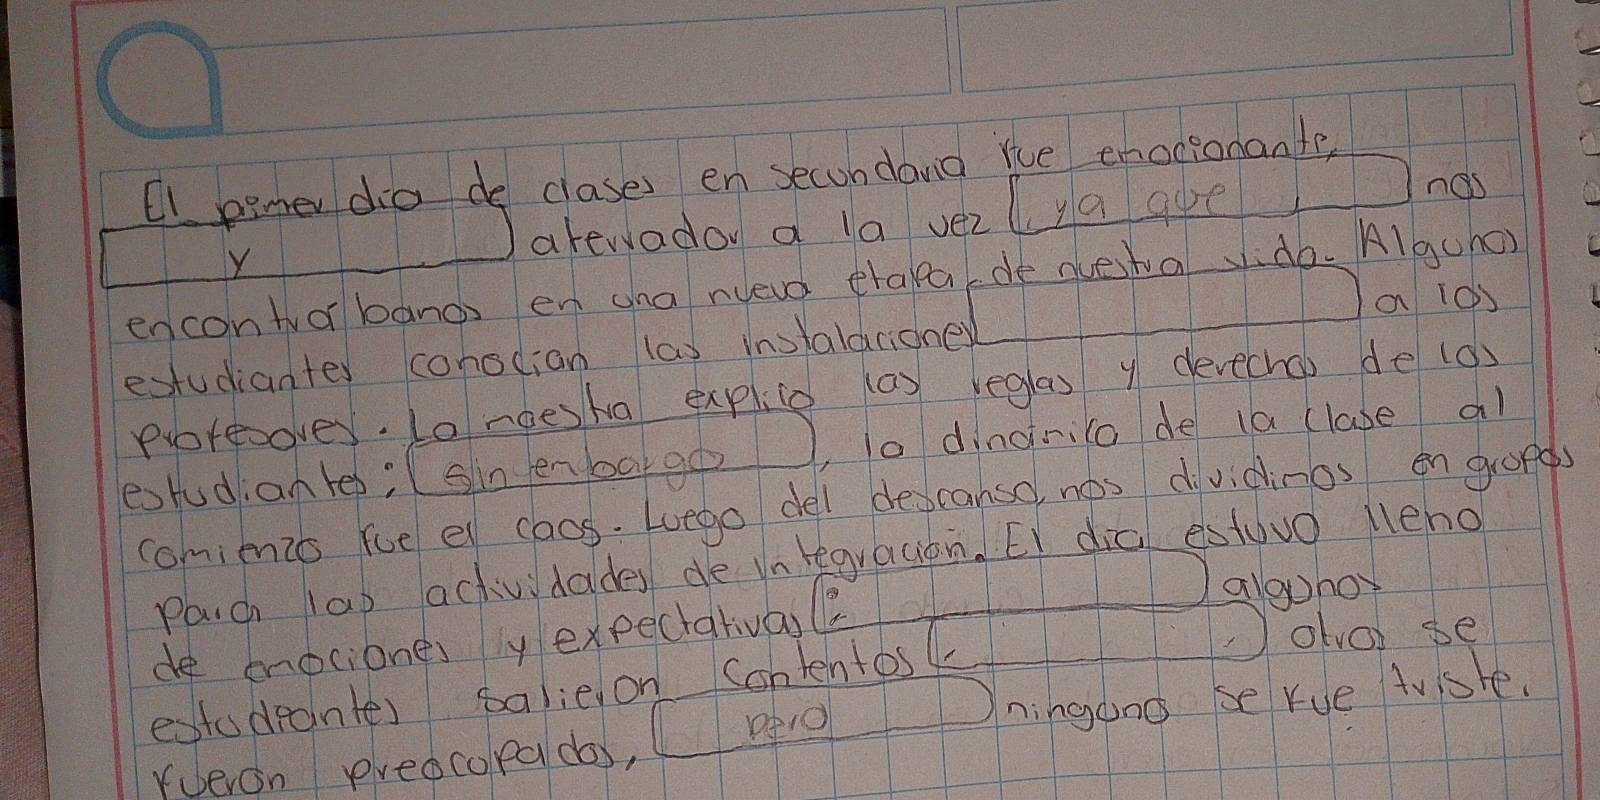 El primer día de clases en secundaria fue emocionante,
y aterrador a la vez ya que nos
encontrabamos en una nueva etapa de nuestra vida. Algunos
estudiantes conocian las instalaciones a los
profesores. La maestra explicó las reglas y derechos de los
estudiantes; sin embargo, la dinámica de la clase al
comienzo fue el caos. Luego del descanso, nos dividimos en grupos
para las actividades de integración. El día estuvo lleno
de emociones y expectativas: algunos
estudiantes salieron contentos, otros se
fueron preocupados, pero ninguno se fue triste.